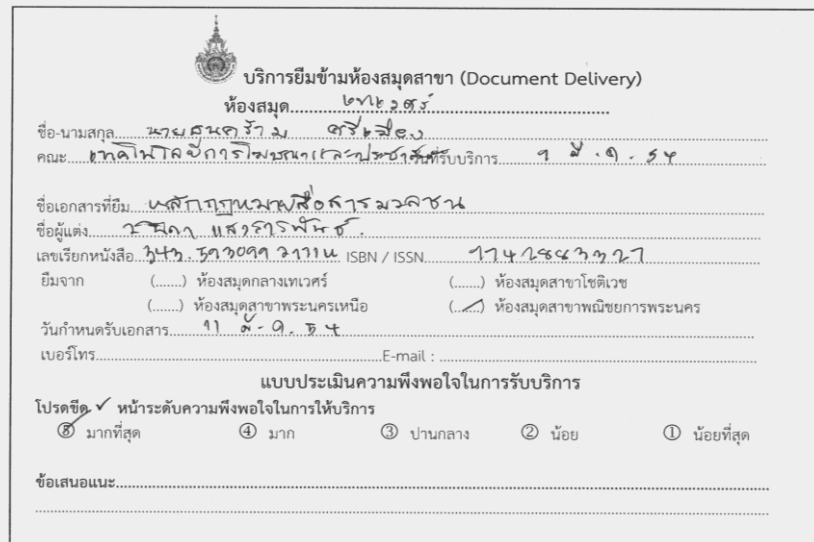 บริการยืมข้ามห้องสมุดสาขา (Document Delivery)
ห้องสมุด เทเวศร์
ชื่อ-นามสกุล นายธนคราม ศรีเสียง
คณะ เทคโนโลยีการโฆษณาและประชาสัมพันธ์ วันที่รับบริการ 9 มี.ค. 54
ชื่อเอกสารที่ยืม หลักกฎหมายสื่อสารมวลชน
ชื่อผู้แต่ง แสวงการพันธ์.
เลขเรียกหนังสือ 343.593099 ISBN / ISSN 9742883327
ยืมจาก (......) ห้องสมุดกลางเทเวศร์ (......) ห้องสมุดสาขาโชติเวช
(......) ห้องสมุดสาขาพระนครเหนือ (../...) ห้องสมุดสาขาพณิชยการพระนคร
วันกำหนดรับเอกสาร 11 มี.ค. 54
เบอร์โทร E-mail :
แบบประเมินความพึงพอใจในการรับบริการ
โปรดขีด ✓ หน้าระดับความพึงพอใจในการให้บริการ
⑤ มากที่สุด ④ มาก ③ ปานกลาง ② น้อย ① น้อยที่สุด
ข้อเสนอแนะ